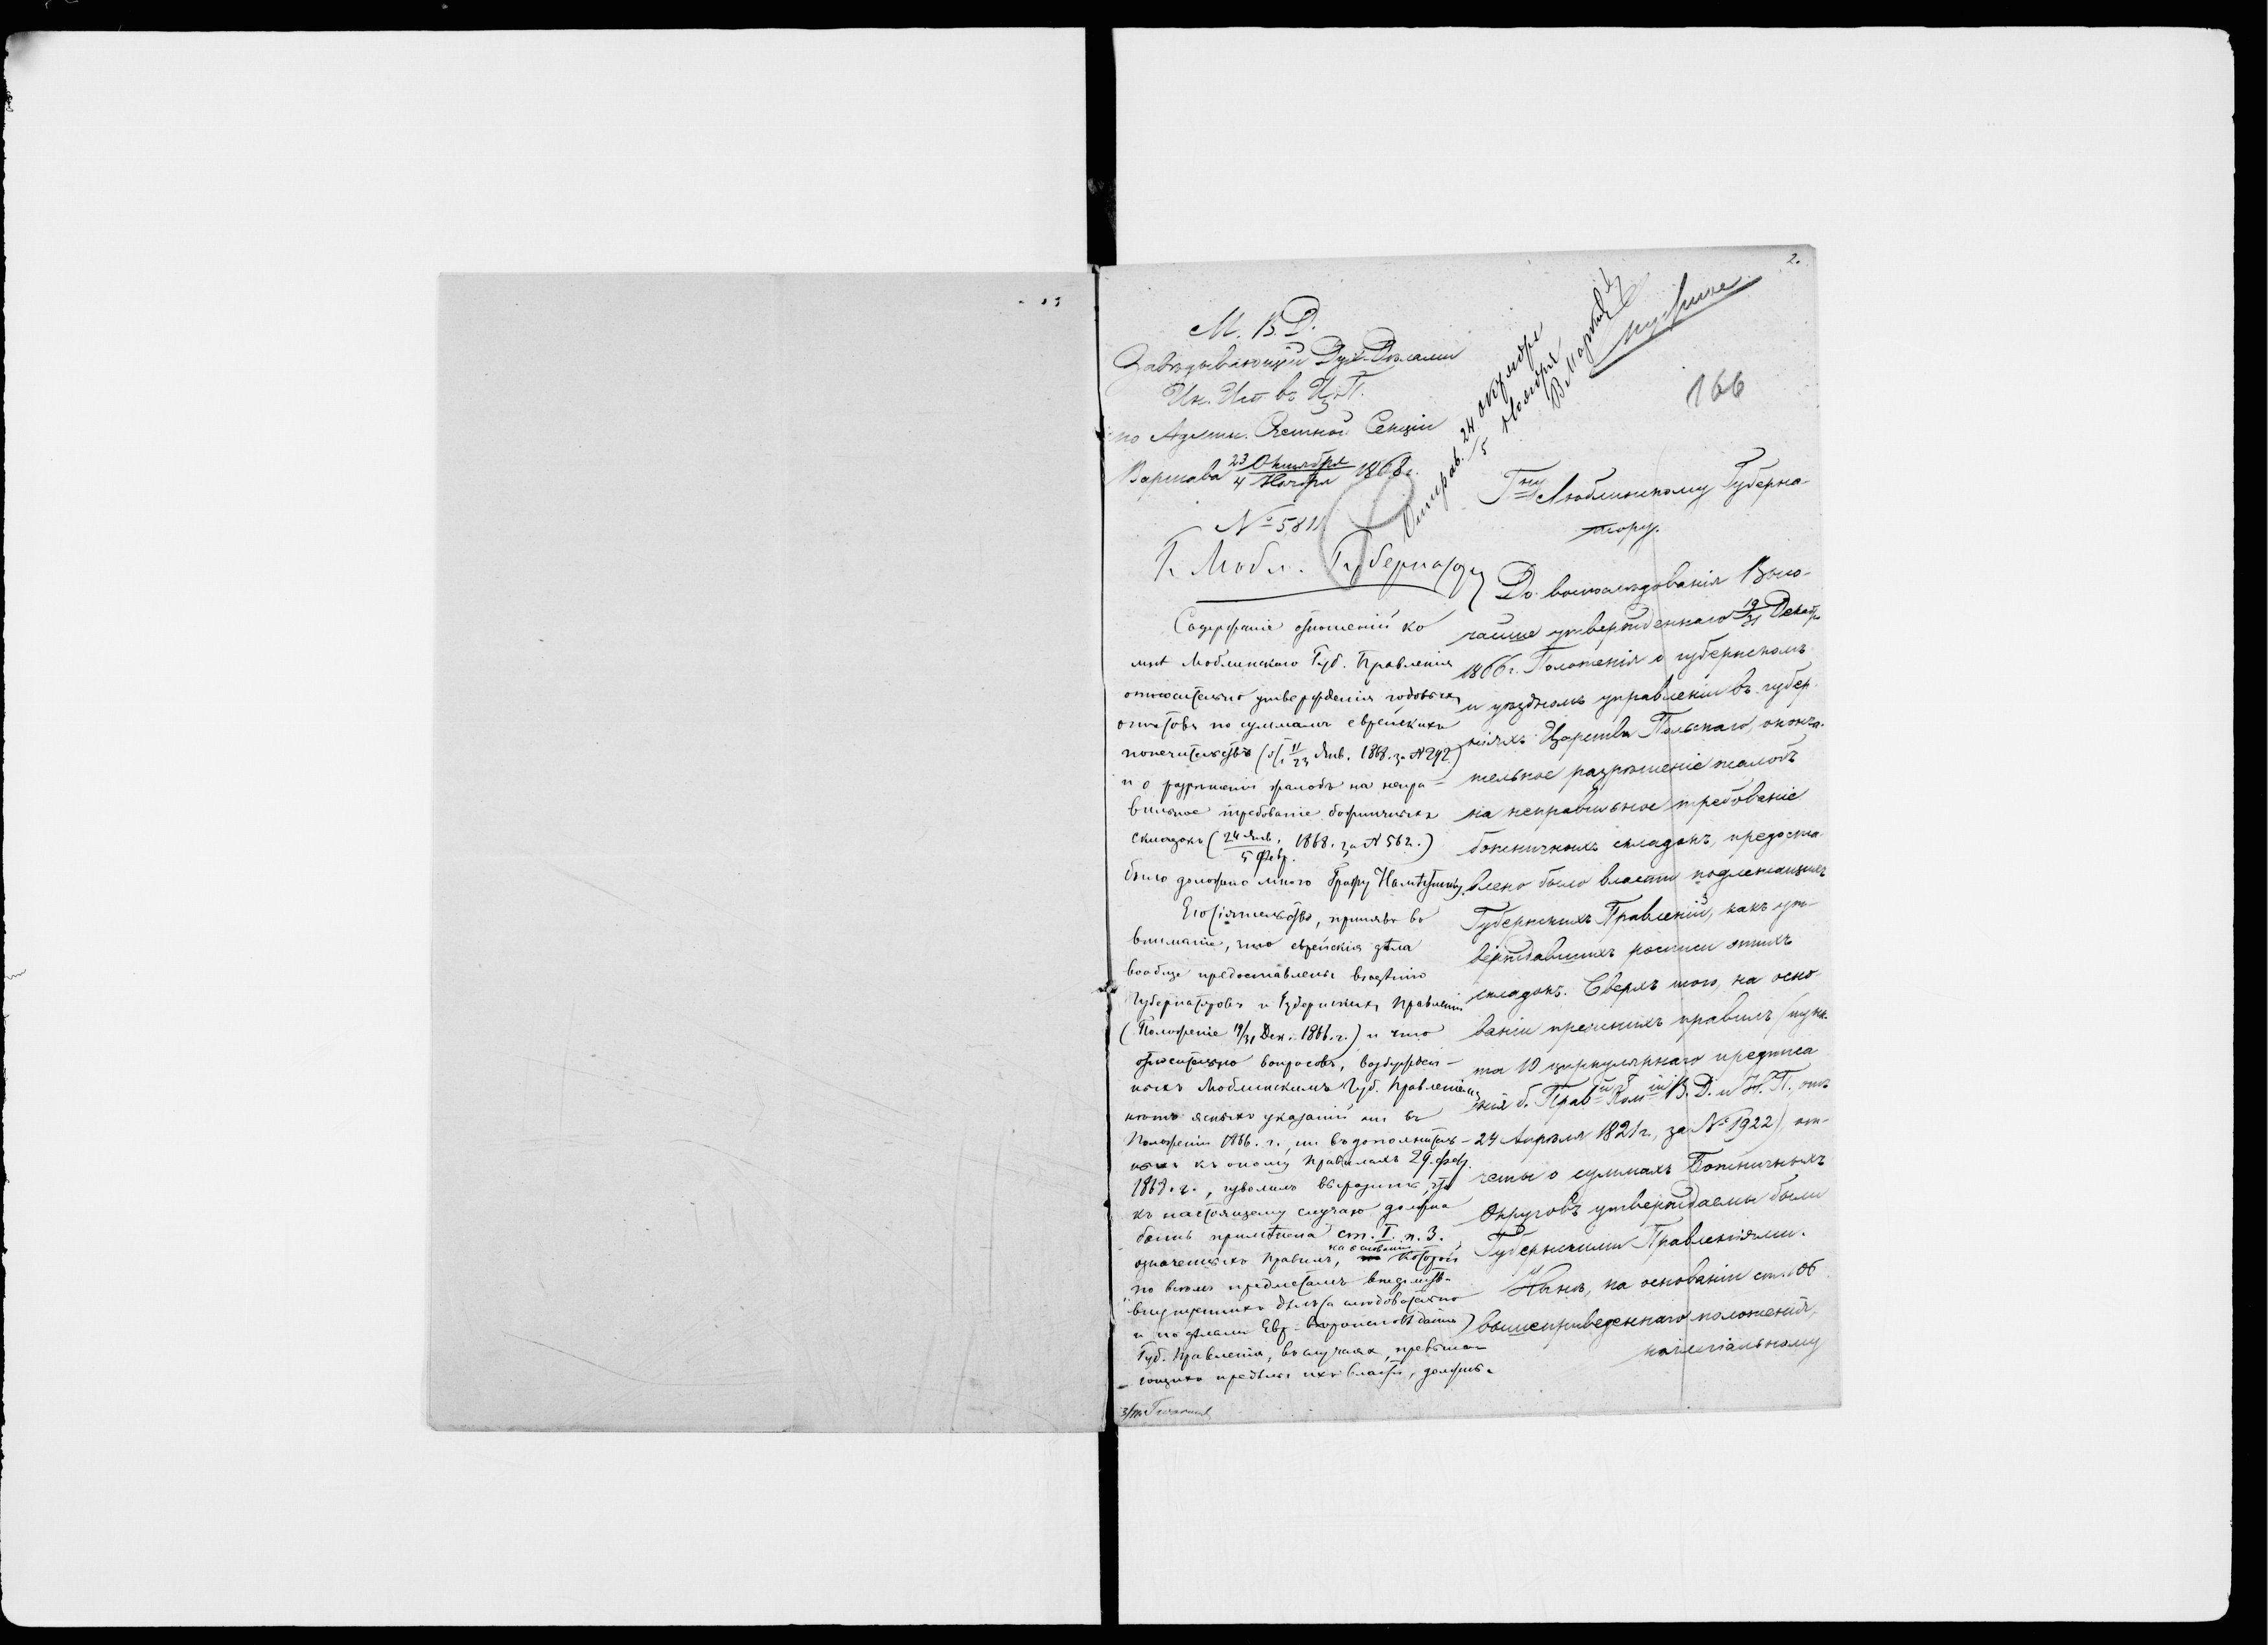 2.
М. В. Д.
Завѣдывающій Дух. Дѣлами
Ин. Исп. въ Ц. П.
по Админ. Счетной Секціи
Варшава 23 Октября / 4 Ноября 1868 г.
№ 5811
Отправ. 24 октября / 5 ноября
166
Г. Любл. Губернатору
Содержаніе отношеній ко
мнѣ Люблинскаго Губ. Правленія
относительно утвержденія годовыхъ
отчетовъ по суммамъ еврейскихъ
попечительствъ (отъ 11/23 Янв. 1868. за № 292.)
и о разрѣшеніи жалобъ на непра-
вильное требованіе божничныхъ
складокъ (24 Янв. / 5 Февр. 1868. за № 562.)
было доложено мною Графу Намѣстнику.
Его Сіятельство, принявъ во
вниманіе, что еврейскія дѣла
вообще предоставлены вѣдѣнію
Губернаторовъ и Губернскихъ Правленій
(Положеніе 19/31 Дек. 1866. г.) и что
относительно вопросовъ, возбужден-
ныхъ Люблинскимъ Губ. Правленіемъ,
нѣтъ ясныхъ указаній ни въ
Положеніи 1866. г., ни въ дополнитель-
ныхъ къ оному правилахъ 29. фев.
1868. г., изволилъ выразить, что
къ настоящему случаю должна
быть примѣнена ст. I. п. 3.
означенныхъ правилъ, на основаніи которой
по всѣмъ предметамъ вѣдомства
внутреннихъ дѣлъ (а слѣдовательно
и по дѣламъ Евр. вѣроисповѣданія)
Губ. Правленія, въ случаяхъ, превыша-
ющихъ предѣлы ихъ власти, должны
Гну Люблинскому Губерна-
тору.
До воспослѣдованія Высо-
чайше утвержденнаго 19/31 Декабр.
1866 г. Положенія о губернскомъ
и уѣздномъ управленіи въ губер-
ніяхъ Царства Польскаго, оконча-
тельное разрѣшеніе жалобъ
на неправильное требованіе
божничныхъ складокъ, предоста-
влено было власти подлежащихъ
Губернскихъ Правленій, какъ ут-
верждавшихъ росписи этихъ
складокъ. Сверхъ того, на осно-
ваніи прежнихъ правилъ (пунк-
та 10 циркулярнаго предписа
нія б. Прав. Ком. В. Д. и Н. П., отъ
24 Апрѣля 1821 г., за № 1922), от-
четы о суммахъ Божничныхъ
Округовъ утверждаемы были
Губернскими Правленіями.
Нынѣ, на основаніи ст. 106
вышеприведеннаго положенія,